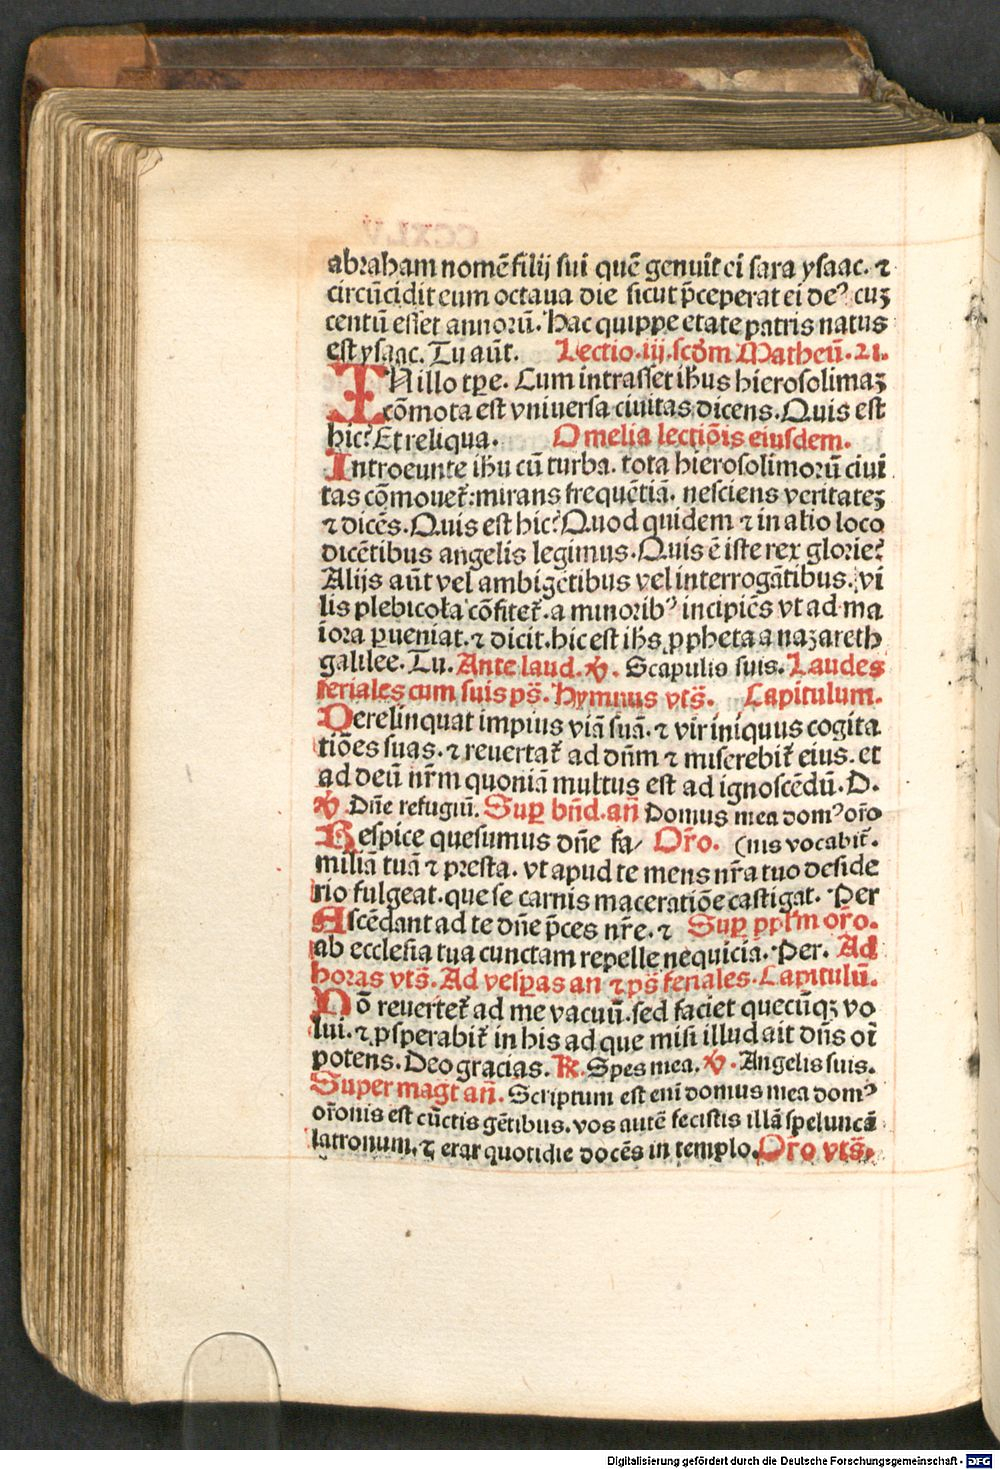 abraham nomē filij sui quē genuit ei sara ysaac. ⁊
circūcidit eum octaua die sicut p̄ceperat ei deꝰ cuꝫ
centū esset annorū. Hac quippe etate patris natus
est ysaac. Tu aūt. Lectio .iij. scd̄m Matheū. 21.
IN illo tꝑe. Cum intrasset ihūs hierosolimaꝫ
cōmota est vniuersa ciuitas dicens. Quis est
hic? Et reliqua. Omelia lectiōis eiusdem.
Introeunte ihū cū turba. tota hierosolimorū ciui
tas cōmouet᷑: mirans frequētiā. nesciens veritateꝫ
⁊ dicēs. Quis est hic? Quod quidem ⁊ in alio loco
dicētibus angelis legimus. Quis ē iste rex glorie?
Alijs aūt vel ambigētibus vel interrogātibus. vi
lis plebicola cōfitet᷑. a minoribꝰ incipiēs vt ad ma
iora ꝑueniat. ⁊ dicit. hic est ihs̄ ꝓpheta a nazareth
galilee. Tu. Ante laud. ℣. Scapulis suis. Laudes
feriales cum suis ps̄. Hymnus vts̄. Capitulum.
Derelinquat impius viā suā. ⁊ vir iniquus cogita
tiōes suas. ⁊ reuertat᷑ ad dn̄m ⁊ miserebit᷑ eius. et
ad deū nr̄m quoniā multus est ad ignoscēdū. D.
℣. Dn̄e refugiū. Suꝑ bn̄d. an̄ Domus mea domꝰ or̄o
Respice quesumus dn̄e fa/ Or̄o. (nis vocabit᷑.
miliā tuā ⁊ presta. vt apud te mens nr̄a tuo deside
rio fulgeat. que se carnis maceratiōe castigat. Per
Ascēdant ad te dn̄e p̄ces nr̄e. ⁊ Suꝑ ppl̄m or̄o.
ab ecclesia tua cunctam repelle nequiciā. Per. Ad
horas vts̄. Ad vesꝑas an ⁊ ps̄ feriales. Capitulū.
Nō reuertet᷑ ad me vacuū. sed faciet quecūqꝫ vo
lui. ⁊ ꝓsperabit᷑ in his ad que misi illud ait dn̄s oī
potens. Deo gracias. ℞. Spes mea. ℣. Angelis suis.
Super maḡt an̄. Scriptum est eni domus mea domꝰ
or̄onis est cūctis gētibus. vos autē fecistis illā speluncā
latronum. ⁊ erat quotidie docēs in templo. Or̄o vts̄.
Digitalisierung gefördert durch die Deutsche Forschungsgemeinschaft - DFG